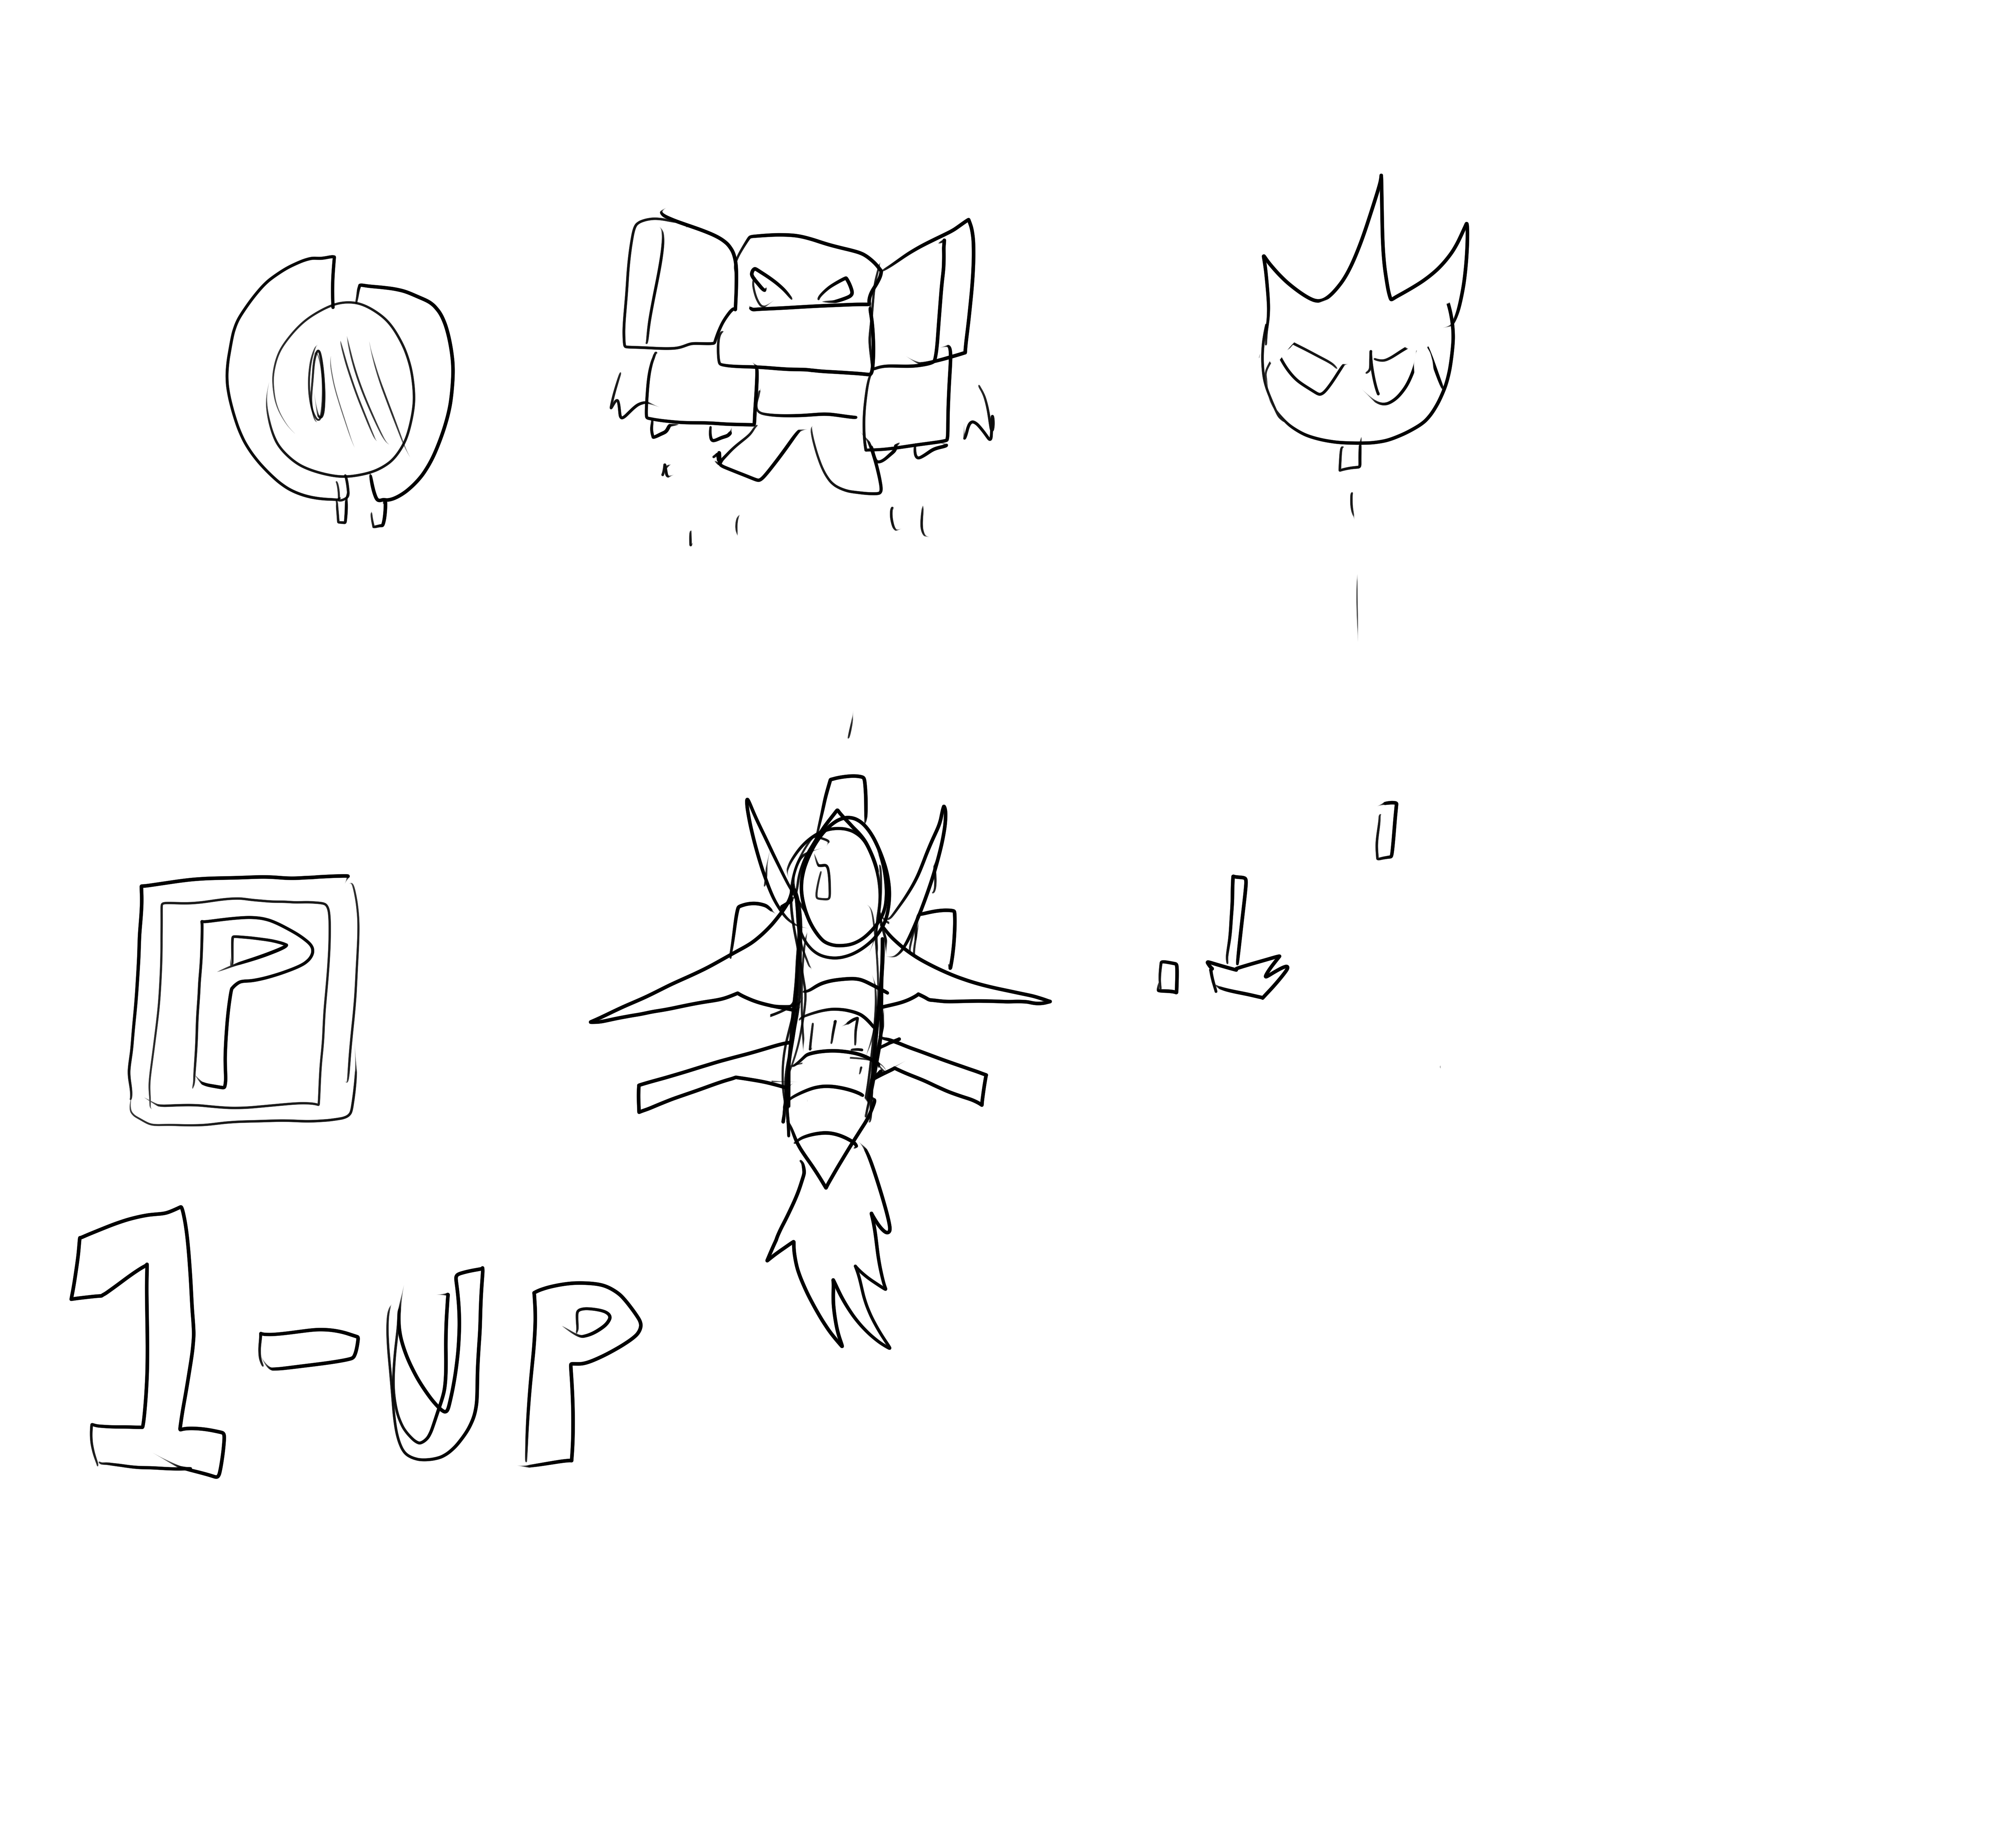 P
1-UP